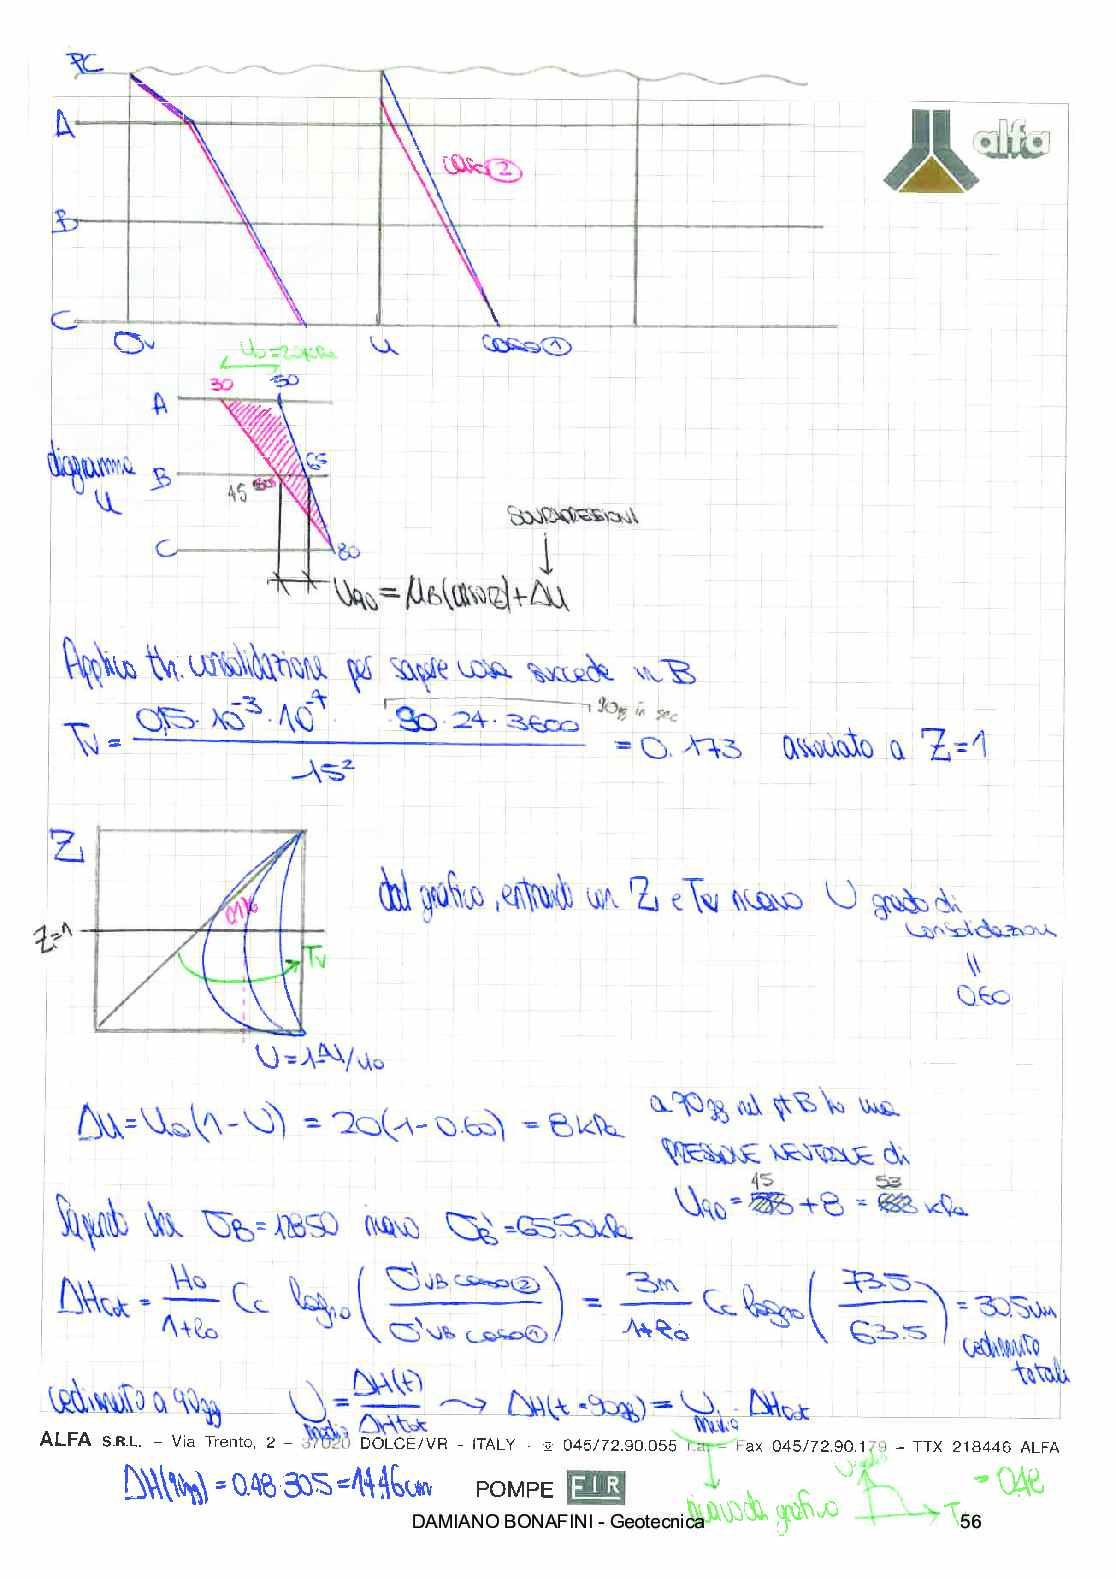 PC
A
alfa
caso 2
B
C
σv
u
caso 1
u0=20kPa
30 50
A
diagramma
u
B
65
45
C
80
SOVRAPRESSIONI
U90 = μB(caso2)+Δu
Applico th. consolidazione per sapere cosa succede in B
Tv = 0,15·10⁻³·10⁻⁴· 90·24·3600 / 15² = 0.173 associato a Z=1
90gg in sec
Z
Z=1
Tv
dal grafico, entrando con Z e Tv ricavo U grado di
consolidazione
=
0.60
U=1-Δu/u0
Δu=u0(1-U) = 20(1-0.60) = 8kPa
a 90gg nel pt B ho una
PRESSIONE NEUTRALE di
45 53
U90 = + 8 = kPa
Sapendo che σB=128.50 ricavo σB'=65.50kPa
ΔHtot = H0/1+e0 Cc log10 (σ'vB caso 2 / σ'vB caso 1) = 3m/1+e0 Cc log10 (73.5/63.5) = 30.5cm
cedimento
totale
cedimento a 90gg U medio = ΔH(t)/ΔHtot → ΔH(t=90gg) = U medio · ΔHtot
ALFA S.R.L. – Via Trento, 2 – 37020 DOLCE/VR - ITALY - ☏ 045/72.90.055 r.a. – Fax 045/72.90.179 – TTX 218446 ALFA
ΔH(90gg) = 0.48·30.5=14.46cm
POMPE FIR
ricavo da grafico
Tv
= 0.48
DAMIANO BONAFINI - Geotecnica
56